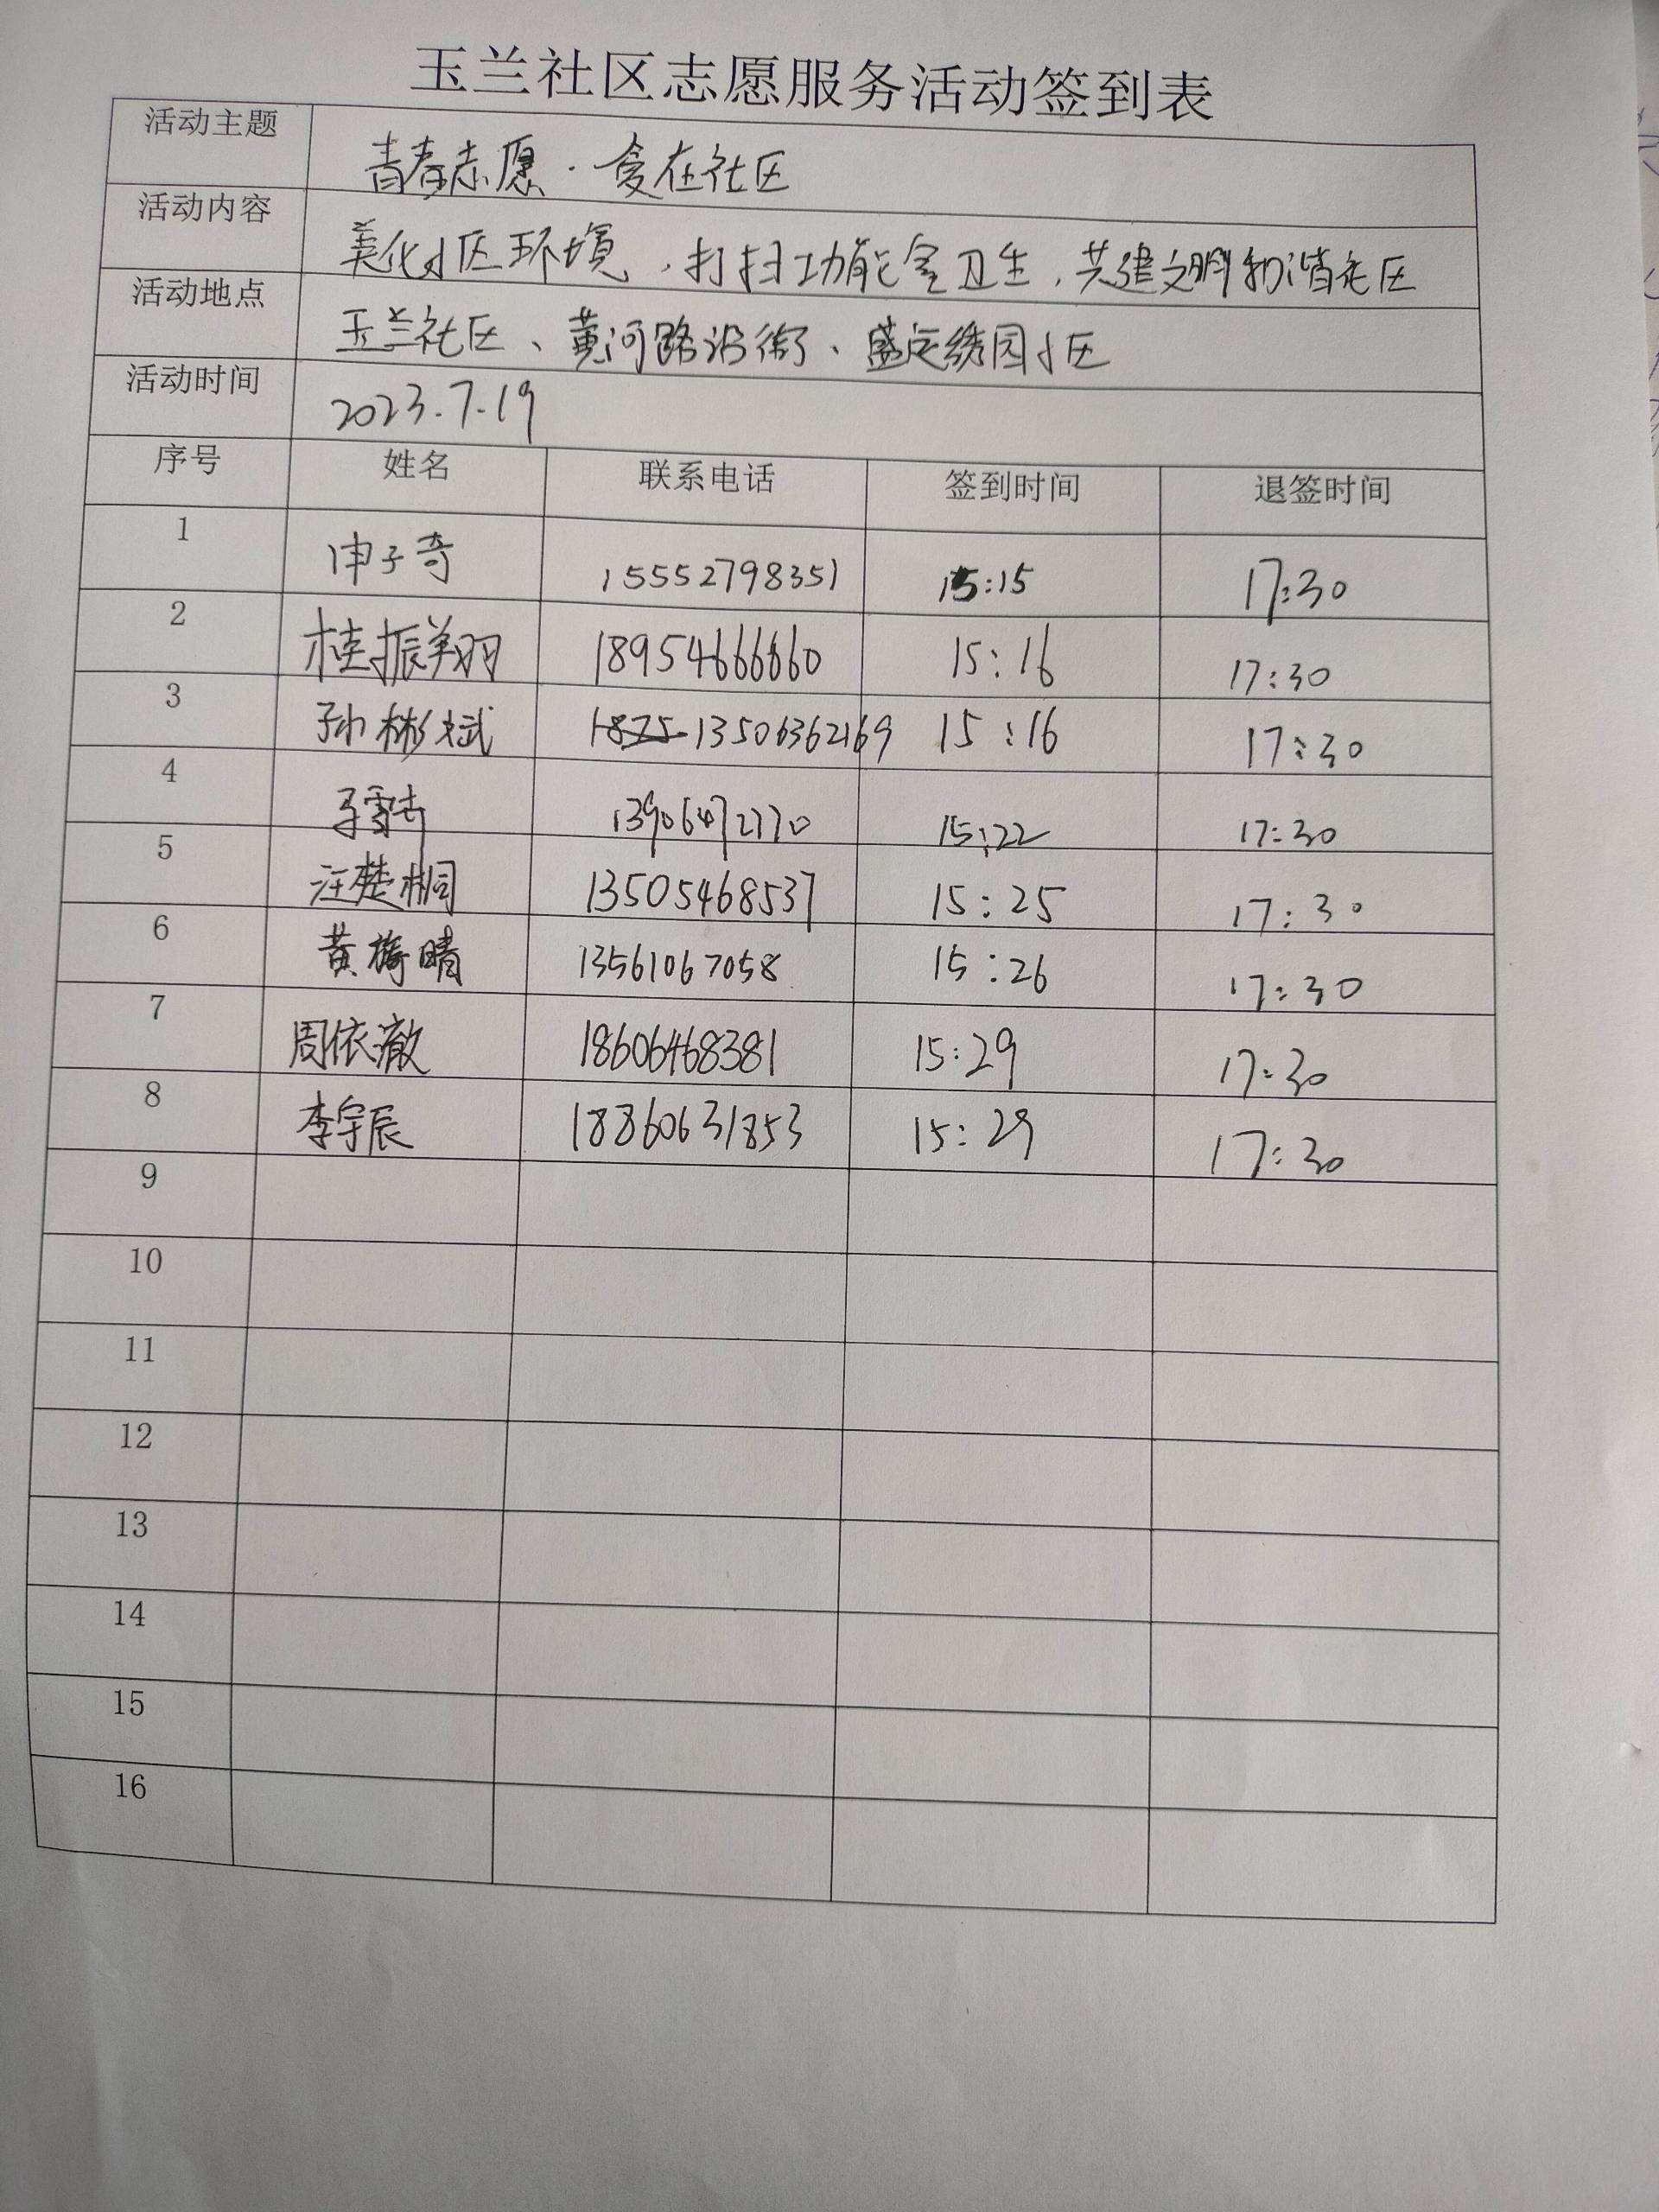 玉兰社区志愿服务活动签到表
活动主题 青春志愿·爱在社区
活动内容 美化小区环境,打扫功能室卫生,共建文明和谐社区
活动地点 玉兰社区、黄河路沿街、盛定绣园小区
活动时间 2023.7.19
序号 姓名 联系电话 签到时间 退签时间
1 申子奇 15552798351 15:15 17:30
2 桂振翔 18954666660 15:16 17:30
3 孙彬斌 1875 13506362169 15:16 17:30
4 15:22 17:30
5 汪楚桐 13505468537 15:25 17:30
6 黄梅晴 13561067058 15:26 17:30
7 周依澈 18606468381 15:29 17:30
8 李宇辰 18860631853 15:29 17:30
9
10
11
12
13
14
15
16